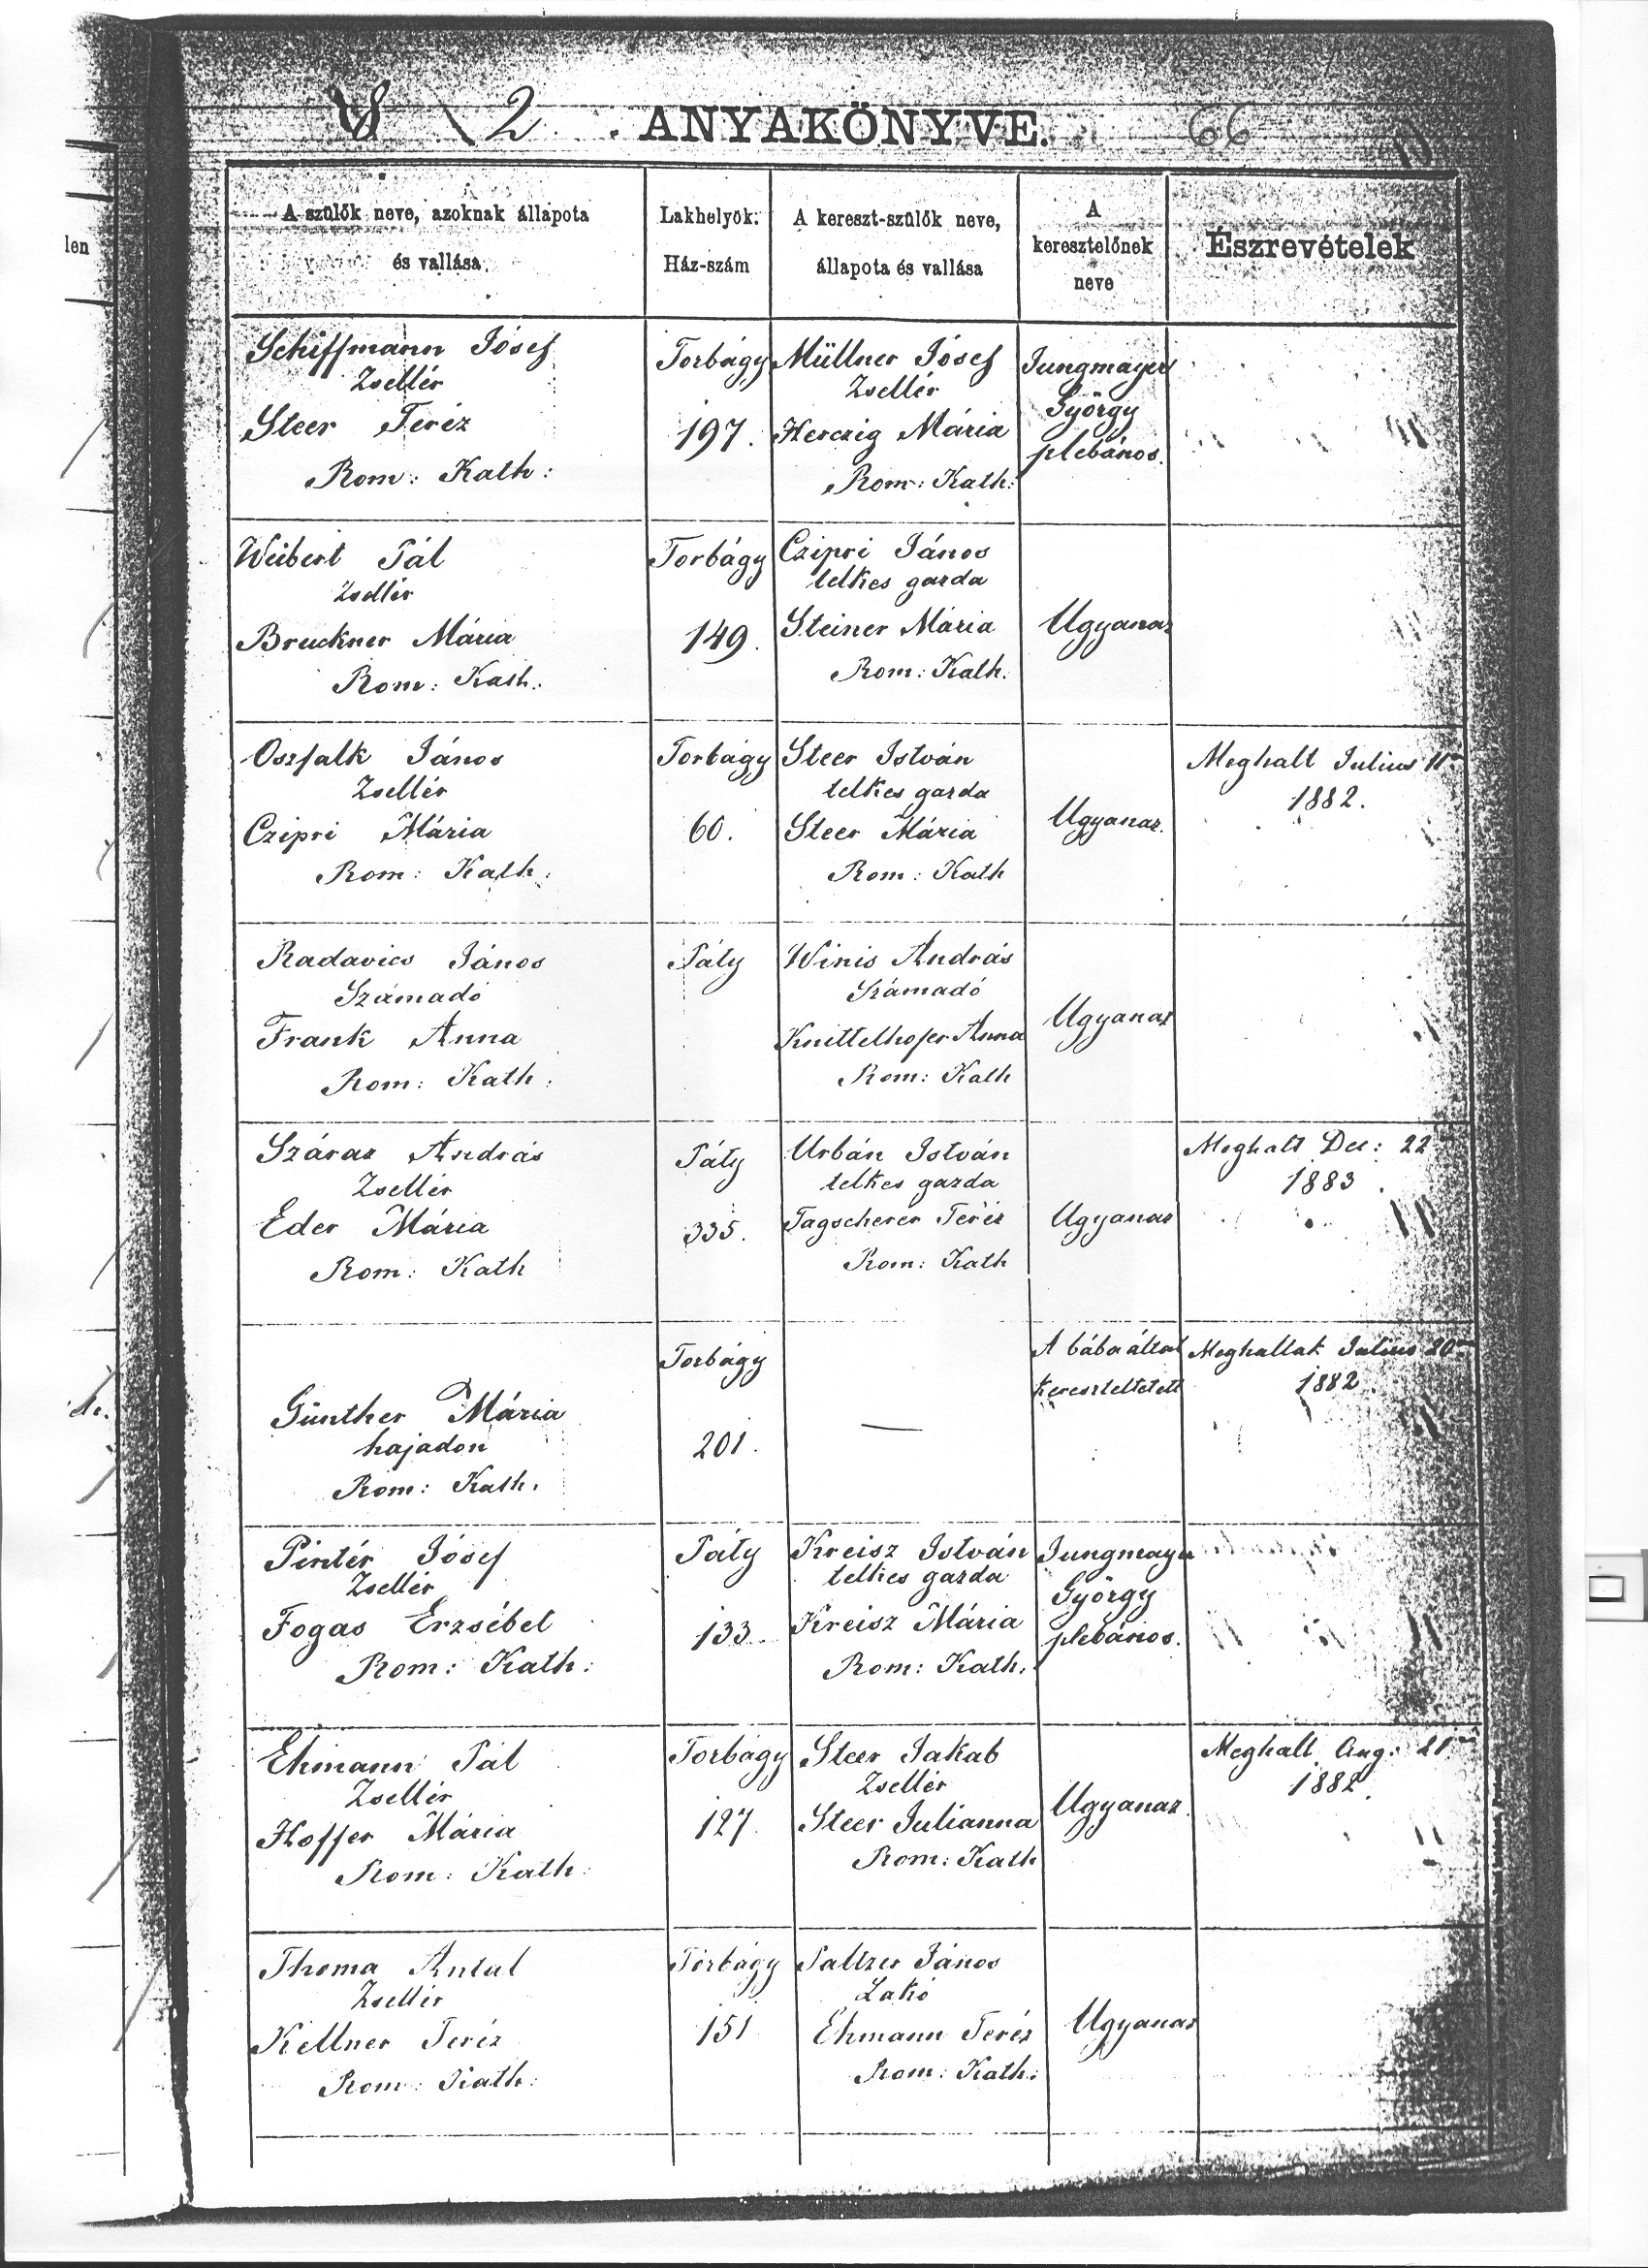 2 ANYAKÖNYVE. 66
len
A szülők neve, azoknak állapota
és vallása
Lakhelyök.
Ház-szám
A kereszt-szülők neve,
állapota és vallása
A
keresztelőnek
neve
Észrevételek
Schiffmann Jósef
Zsellér
Steer Teréz
Rom: Kath:
Torbágy
197.
Müllner Jósef
Zsellér
Herczig Mária
Rom: Kath:
Jungmayer
György
plebános.
Weibert Pál
Zsellér
Bruckner Mária
Rom: Kath:
Torbágy
149.
Czipri János
telkes gazda
Steiner Mária
Rom: Kath:
Ugyanaz
Oszfalk János
Zsellér
Czipri Mária
Rom: Kath:
Torbágy
60.
Steer István
telkes gazda
Steer Mária
Rom: Kath
Ugyanaz.
Meghalt Julius 11
1882.
Radavics János
Számadó
Frank Anna
Rom: Kath:
Páty
Winis András
Számadó
Knittelhofer Anna
Rom: Kath
Ugyanaz
Száraz András
Zsellér
Eder Mária
Rom: Kath
Páty
335.
Urbán István
telkes gazda
Tagscherer Teréz
Rom: Kath
Ugyanaz
Meghalt Dec: 22
1883.
Günther Mária
hajadon
Rom: Kath.
Torbágy
201.
—
A bába által
kereszteltetett
Meghaltak Julius 20
1882.
Pintér Jósef
Zsellér
Fogas Erzsébet
Rom: Kath:
Páty
133.
Kreisz István
telkes gazda
Kreisz Mária
Rom: Kath.
Jungmayer
György
plebános.
Ehmann Pál
Zsellér
Hoffer Mária
Rom: Kath:
Torbágy
127.
Steer Jakab
Zsellér
Steer Julianna
Rom: Kath
Ugyanaz.
Meghalt Aug: 21
1882.
Thoma Antal
Zsellér
Kellner Teréz
Rom: Kath:
Torbágy
151
Paltzer János
Lakó
Ehmann Teréz
Rom: Kath:
Ugyanaz